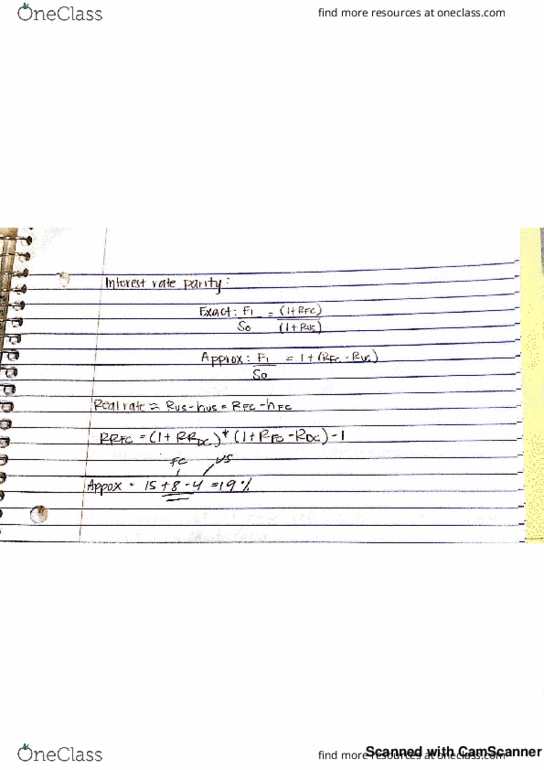 OneClass
find more resources at oneclass.com
Interest rate parity:
Exact: F1 = (1+RFC)
S0 (1+RUS)
Approx: F1 = 1+(RFC-RUS)
S0
Real rate = RUS-hUS = RFC-hFC
RRFC = (1+RRDC)*(1+RFC-RDC)-1
FC US
Appox = 15+8-4 =19%
OneClass
find more resources at oneclass.com
Scanned with CamScanner